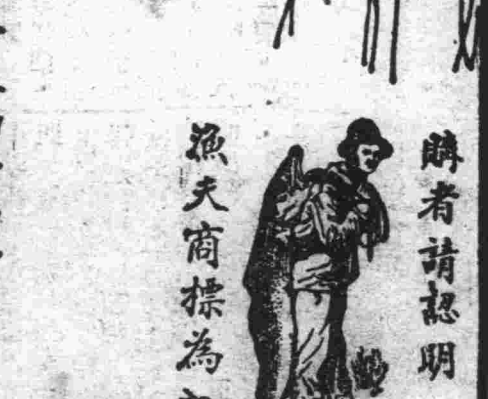 購者請認明
漁夫商標為